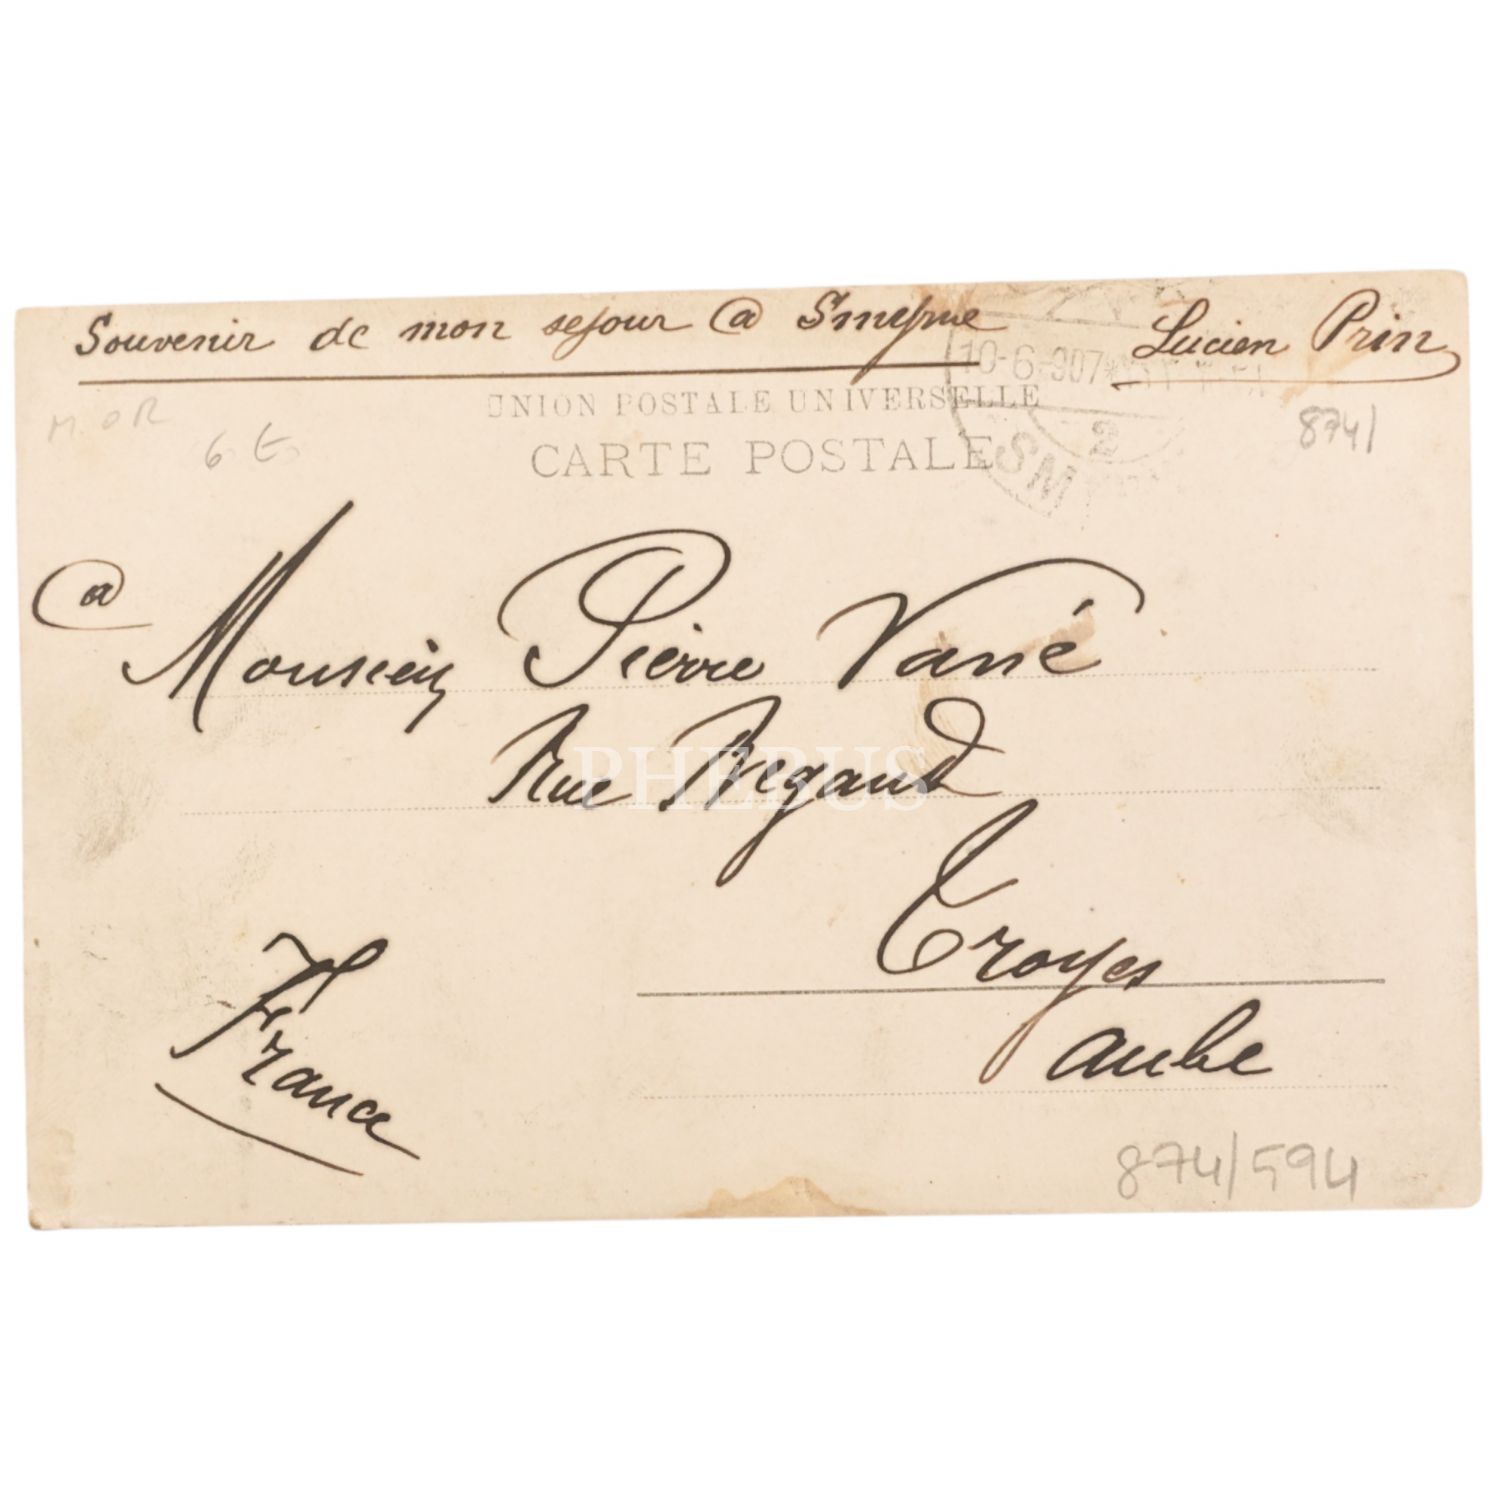 Souvenir de mon sejour @ Smyrne Lucien Prin
10-6-907
UNION POSTALE UNIVERSELLE
CARTE POSTALE
2
SM
M.OR
874/
@ Monsieur Pierre
Rue Regaud
PHEBUS
Troyes
aube
France
874/594